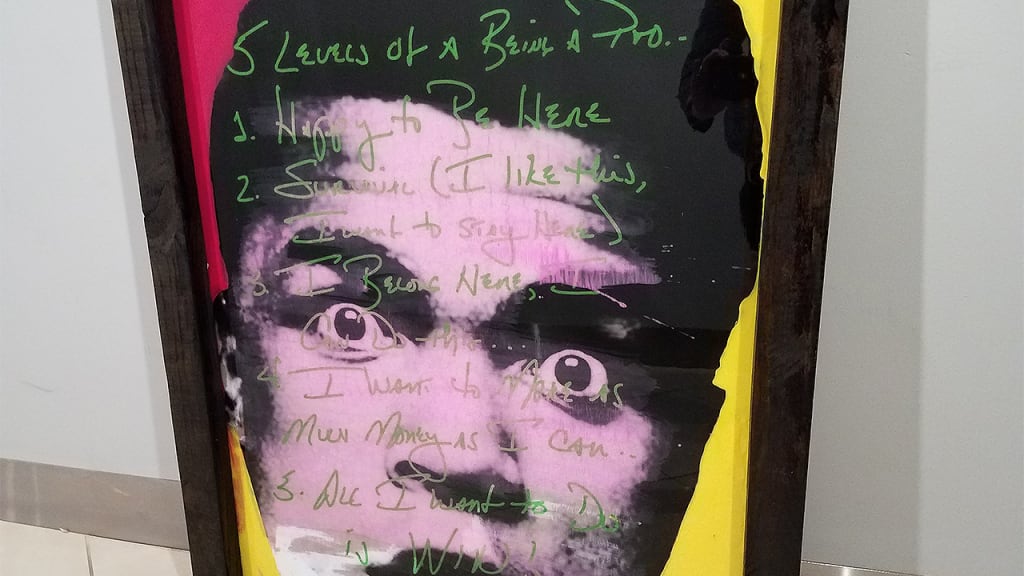 5 Levels of A Being A Pro..
1. Happy to Be Here
2. Survival (I like this,
I want to stay Here)
3 I Belong Here, I
Can Do this...
4 I Want to Make AS
Much Money AS I CAN..
5. All I want to Do
is WIN!